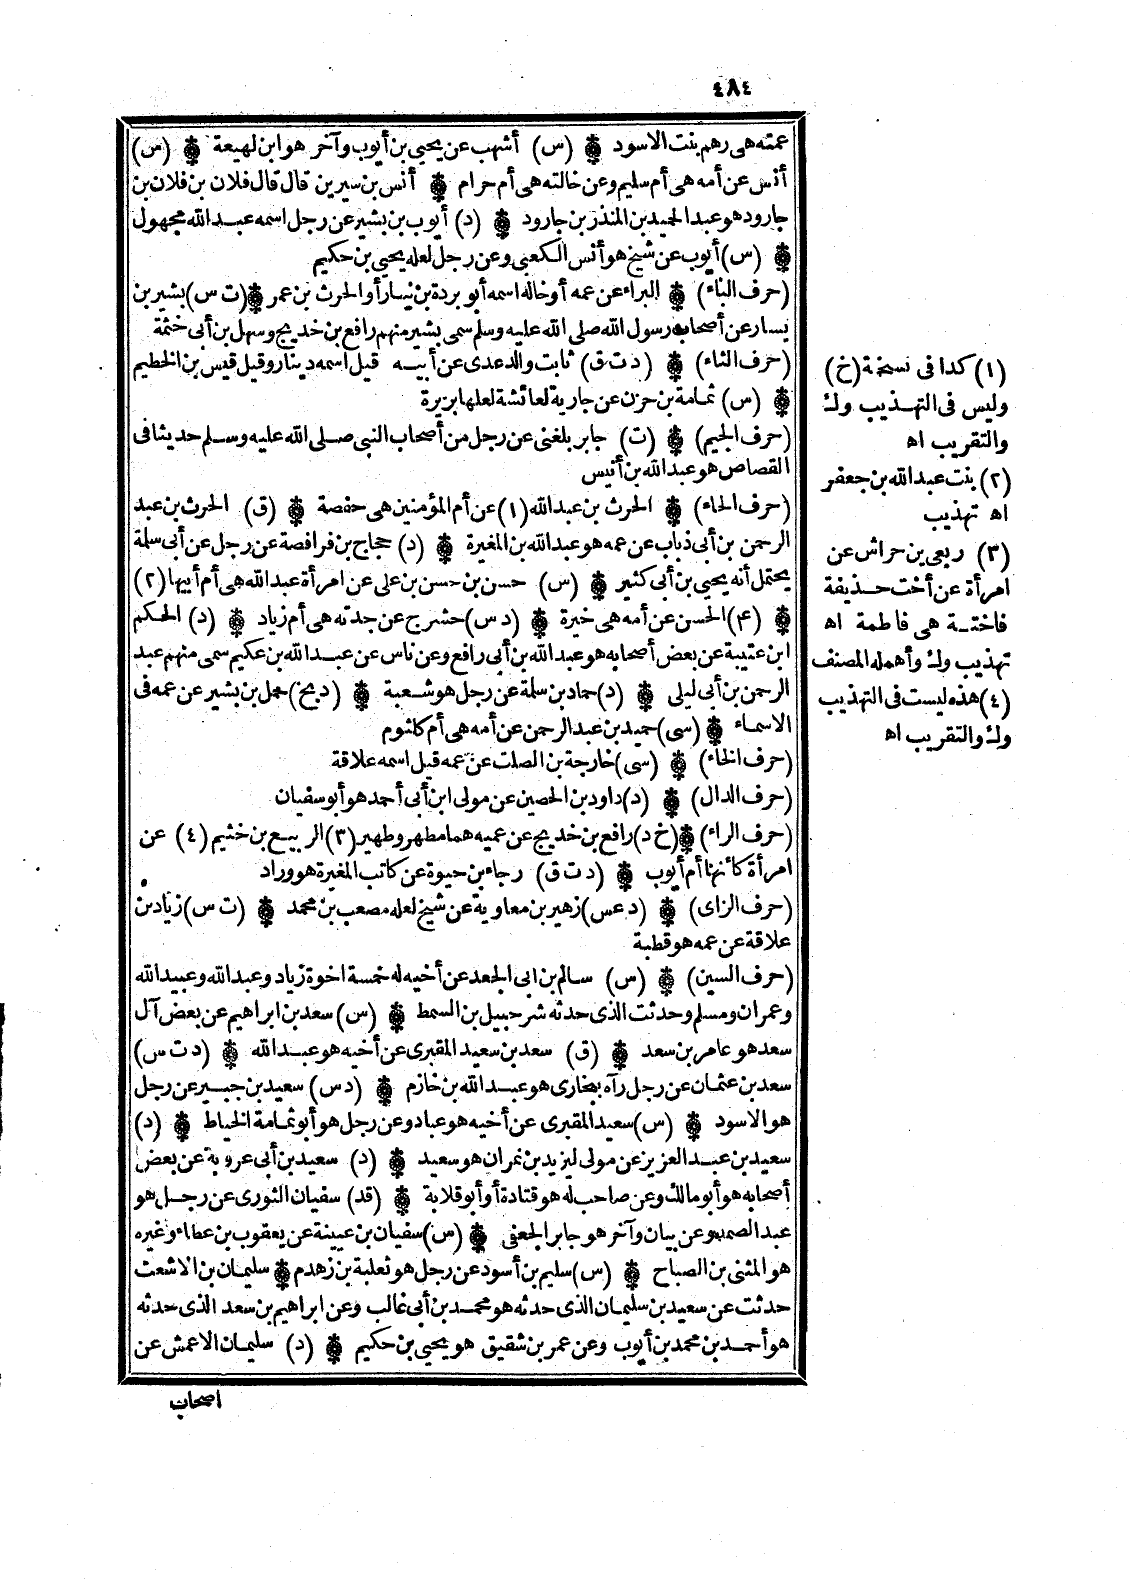 ٤٨٤
عمته هى رهم بنت الاسود ۞ (س) أشهب عن يحيى بن أيوب وآخر هو ابن لهيعة ۞ (س)
أنس عن أمه هى أم سليم وعن خالته هى أم حرام ۞ أنس بن سيرين قال قال فلان بن فلان بن
جارود هو عبد الحميد بن المنذر بن جارود ۞ (د) أيوب بن بشير عن رجل اسمه عبد الله مجهول
۞ (س) أيوب عن شيخ هو أنس الكعبى وعن رجل لعله يحيى بن حكيم
(حرف الباء) ۞ البراء عن عمه أو خاله اسمه أبو بردة بن نيار أو الحرث بن عمر ۞ (ت س) بشير بن
يسار عن أصحاب رسول الله صلى الله عليه وسلم سمى بشير منهم رافع بن خديج وسهل بن أبى خثمة
(حرف الثاء) ۞ (د ت ق) ثابت والد عدى عن أبيه قيل اسمه دينار وقيل قيس بن الخطيم
۞ (س) ثمامة بن حزن عن جارية لعائشة لعلها بريرة
(حرف الجيم) ۞ (ت) جابر بلغنى عن رجل من أصحاب النبى صلى الله عليه وسلم حديثا فى
القصاص هو عبد الله بن أنيس
(حرف الحاء) ۞ الحرث بن عبد الله (١) عن أم المؤمنين هى حفصة ۞ (ق) الحرث بن عبد
الرحمن بن أبى ذباب عن عمه هو عبد الله بن المغيرة ۞ (د) حجاج بن فرافصة عن رجل عن أبى سلمة
يحتمل أنه يحيى بن أبى كثير ۞ (س) حسن بن حسن بن على عن امرأة عبد الله هى أم أبيها (٢)
۞ (٤) الحسن عن أمه هى خيرة ۞ (د س) حشرج عن جدته هى أم زياد ۞ (د) الحكم
ابن عتيبة عن بعض أصحابه هو عبد الله بن أبى رافع وعن ناس عن عبد الله بن عكيم سمى منهم عبد
الرحمن بن أبى ليلى ۞ (د) حماد بن سلمة عن رجل هو شعبة ۞ (د بخ) حمل بن بشير عن عمه فى
الاسماء ۞ (سى) حميد بن عبد الرحمن عن أمه هى أم كلثوم
(حرف الخاء) ۞ (سى) خارجة بن الصلت عن عمه قيل اسمه علاقة
(حرف الدال) ۞ (د) داود بن الحصين عن مولى ابن أبى أحمد هو أبو سفيان
(حرف الراء) ۞ (خ د) رافع بن خديج عن عميه هما مظهر وظهير (٣) الربيع بن خثيم (٤) عن
امرأة كأنها أم أيوب ۞ (د ت ق) رجاء بن حيوة عن كاتب المغيرة هو وراد
(حرف الزاى) ۞ (د عس) زهير بن معاوية عن شيخ لعله مصعب بن محمد ۞ (ت س) زياد بن
علاقة عن عمه هو قطبة
(حرف السين) ۞ (س) سالم بن ابى الجعد عن أخيه له خمسة اخوة زياد وعبد الله وعبيد الله
وعمران ومسلم وحدثت الذى حدثه شرحبيل بن السمط ۞ (س) سعد بن ابراهيم عن بعض آل
سعد هو عامر بن سعد ۞ (ق) سعد بن سعيد المقبرى عن أخيه هو عبد الله ۞ (د ت س)
سعد بن عثمان عن رجل رآه ببخارى هو عبد الله بن خازم ۞ (د س) سعيد بن جبير عن رجل
هو الاسود ۞ (س) سعيد المقبرى عن أخيه هو عباد وعن رجل هو أبو ثمامة الخياط ۞ (د)
سعيد بن عبد العزيز عن مولى ليزيد بن نمران هو سعيد ۞ (د) سعيد بن أبى عروبة عن بعض
أصحابه هو أبو مالك وعن صاحب له هو قتادة أو أبو قلابة ۞ (قد) سفيان الثورى عن رجل هو
عبد الصمد وعن بيان وآخر هو جابر الجعفى ۞ (س) سفيان بن عيينة عن يعقوب بن عطاء وغيره
هو المثنى بن الصباح ۞ (س) سليم بن أسود عن رجل هو ثعلبة بن زهدم ۞ سليمان بن الاشعث
حدثت عن سعيد بن سليمان الذى حدثه هو محمد بن أبى غالب وعن ابراهيم بن سعد الذى حدثه
هو أحمد بن محمد بن أيوب وعن عمر بن شقيق هو يحيى بن حكيم ۞ (د) سليمان الاعمش عن
اصحاب
(١) كذا فى نسخة (خ)
وليس فى التهذيب وك
والتقريب اه
(٢) بنت عبد الله بن جعفر
اه تهذيب
(٣) ربعى بن حراش عن
امرأة عن أخت حذيفة
فاختة هى فاطمة اه
تهذيب وك وأهمله المصنف
(٤) هذه ليست فى التهذيب
وك والتقريب اه